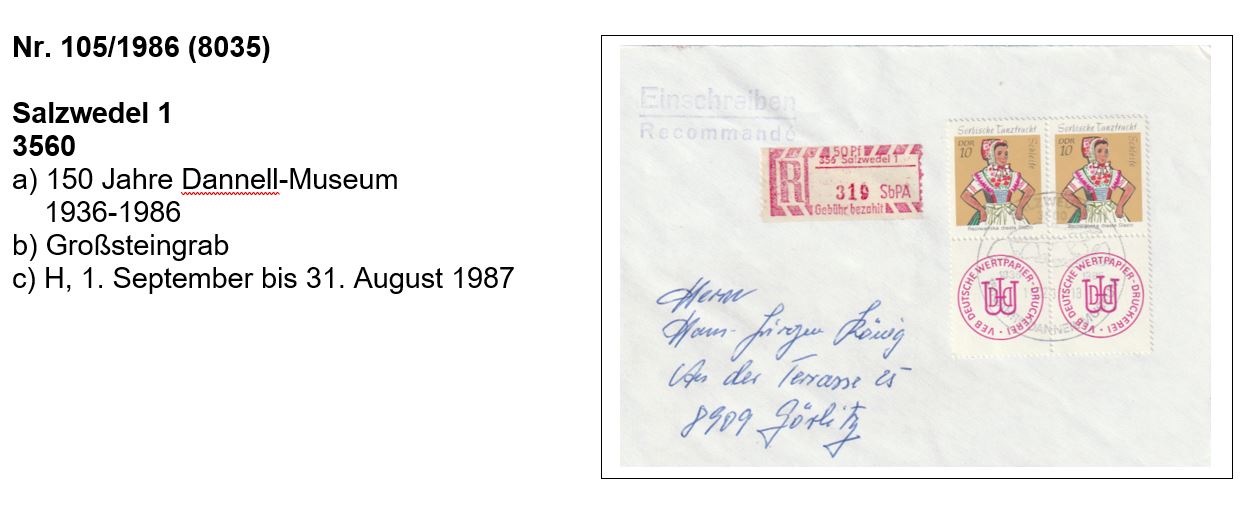 Nr. 105/1986 (8035)
Salzwedel 1
3560
a) 150 Jahre Dannell-Museum
1936-1986
b) Großsteingrab
c) H, 1. September bis 31. August 1987
Einschreiben
Recommandé
50 Pf
356 Salzwedel 1
R
319 SbPA
Gebühr bezahlt
Sorbische Tanztracht
DDR
10
Schleife
Sorbische Tanztracht
DDR
10
Schleife
VEB DEUTSCHE WERTPAPIER-DRUCKEREI
VEB DEUTSCHE WERTPAPIER-DRUCKEREI
Herrn
Hans-Jürgen König
An der Terrasse 25
8909 Görlitz